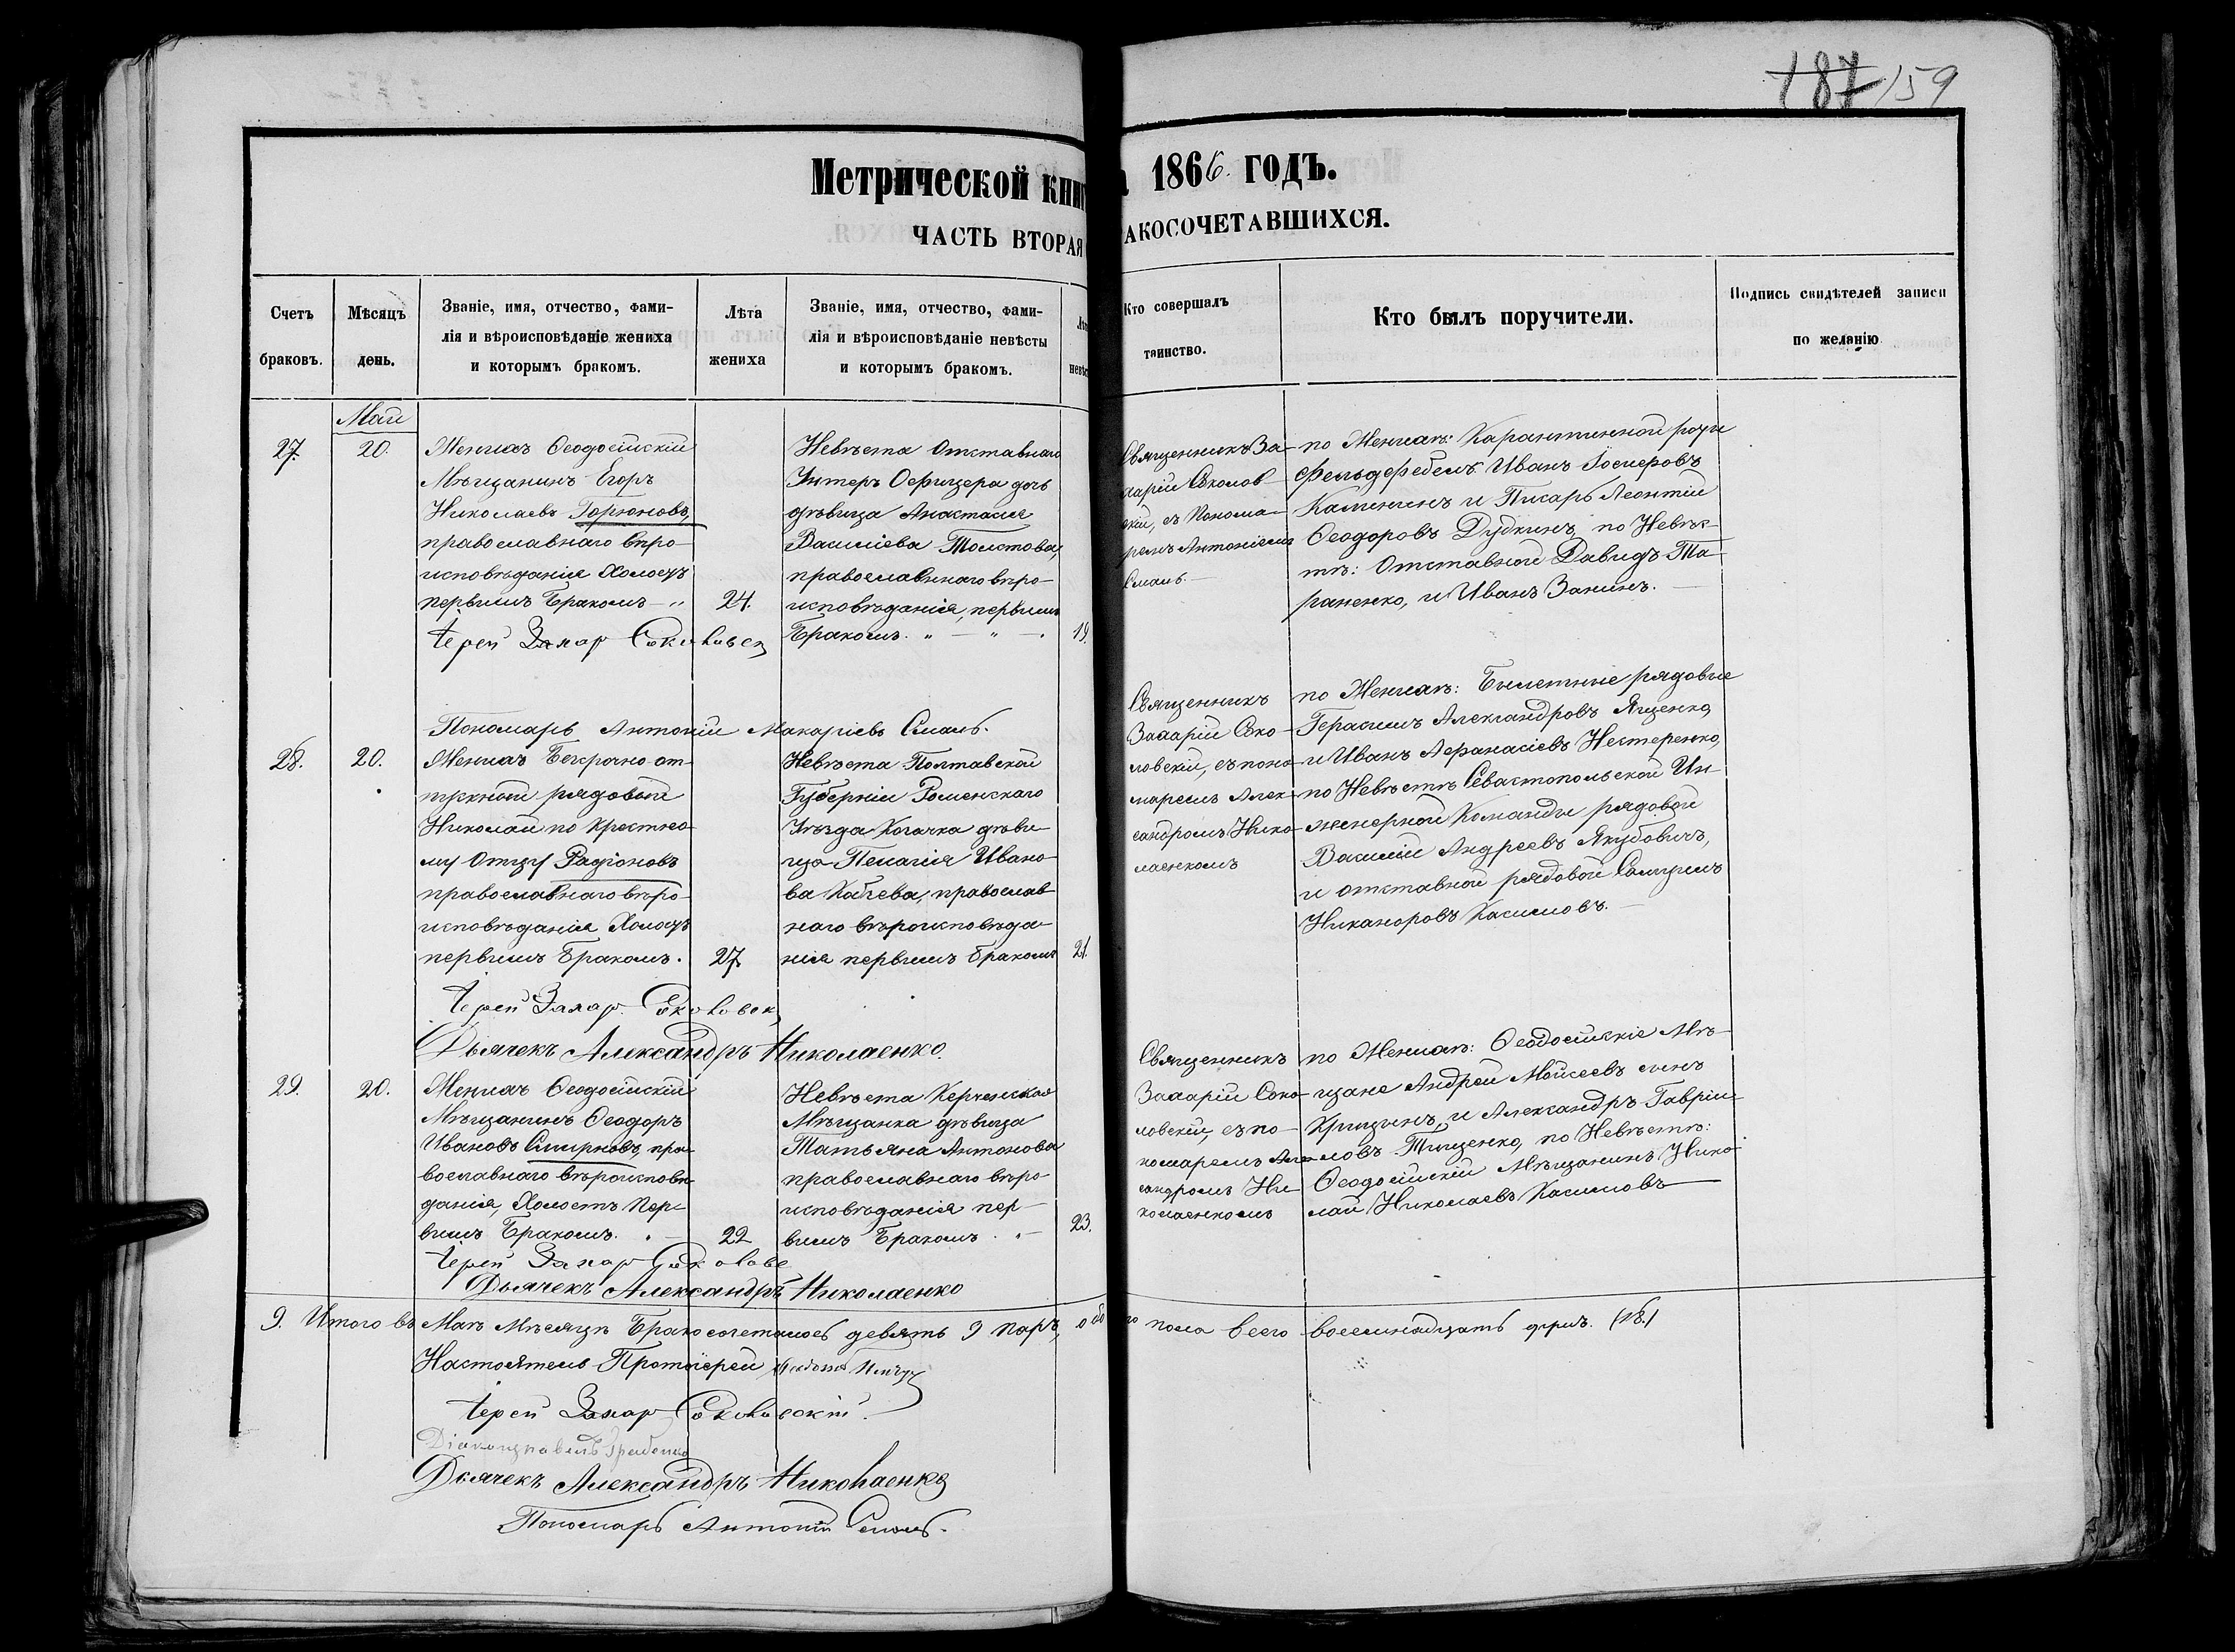 187 159
Метрической кни
а 1866 годъ.
ЧАСТЬ ВТОРАЯ
АКОСОЧЕТАВШИХСЯ.
Счетъ браковъ.
Мѣсяцъ день.
Званіе, имя, отчество, фами-
лія и вѣроисповѣданіе жениха
и которымъ бракомъ.
Лѣта жениха
Званіе, имя, отчество, фами-
лія и вѣроисповѣданіе невѣсты
и которымъ бракомъ.
Кто совершалъ
таинство.
Кто былъ поручители.
Подпись свидѣтелей записи
по желанію
Май
27.
20.
Женихъ Ѳеодосійскій
Мѣщанинъ Егоръ
Николаевъ Горюновъ,
православнаго вѣро-
исповѣданія Холостъ
первымъ Бракомъ
24.
Невѣста Отставнаго
Унтеръ Офицера дочь
дѣвица Анастасія
Василіева Толстова,
православнаго вѣро-
исповѣданія, первымъ
Бракомъ.
19.
Священникъ За-
харій Соколов
скій, съ Понома-
ремъ Антоніемъ
Смаль.
по Женихѣ: Карантинной роты
Фельдфебель Иванъ Іосифовъ
Калининъ и Писарь Леонтій
Ѳеодоровъ Дудкинъ, по Невѣс-
тѣ: Отставной Давидъ Та-
раненко, и Иванъ Занинъ.
Іерей Захар Соколовск
Пономарь Антоній Макаріевъ Смаль.
28.
20.
Женихъ Безсрочно-от-
пускной рядовой
Николай по Крестно-
му Отцу Радіоновъ
православнаго вѣро-
исповѣданія Холостъ
первымъ Бракомъ.
27
Невѣста Полтавской
Губерніи Роменскаго
Уѣзда Козачка дѣви-
ца Пелагія Ивано-
ва Кабчева, православ-
наго вѣроисповѣда-
нія первымъ бракомъ
21.
Священникъ
Захарій Соко-
ловскій, съ поно-
маремъ Алек-
сандромъ Нико-
лаенкомъ
по Женихѣ: Билетные рядовые
Герасимъ Александровъ Яценко,
и Иванъ Афанасіевъ Нестеренко,
по Невѣстѣ Севастопольской Ин-
женерной Команды рядовой
Василій Андреевъ Якубовичъ,
и отставной рядовой
Никаноровъ Касимовъ.
Іерей Захар. Соколовск
Дьячекъ Александръ Николаенко.
29.
20.
Женихъ Ѳеодосійскій
Мѣщанинъ Ѳеодоръ
Ивановъ Смирновъ, пра-
вославнаго вѣроисповѣ-
данія, Холостъ Пер-
вымъ Бракомъ.
22
Невѣста Керченская
Мѣщанка дѣвица
Татьяна Антонова
православнаго вѣро-
исповѣданія пер-
вымъ Бракомъ.
23.
Священникъ
Захарій Соко-
ловскій, съ по-
номаремъ Алек-
сандромъ Ни-
колаенкомъ
по Женихѣ: Ѳеодосійскіе Мѣ-
щане Андрей Мойсеевъ сынъ
Крицынъ, и Александръ Гавріи-
ловъ Тищенко, по Невѣстѣ:
Ѳеодосійскій Мѣщанинъ Нико-
лай Николаевъ Касимовъ
Іерей Захар Соколовс
Дьячекъ Александръ Николаенко
9. Итого въ Маѣ Мѣсяцѣ Бракосочеталось девять 9 паръ, обо го пола всего восемнадцать душъ. (18.)
Настоятель Протоіерей
Іерей Захар Соколовскій.
Дьячекъ Александръ Николаенко
Пономарь Антоній Смаль.